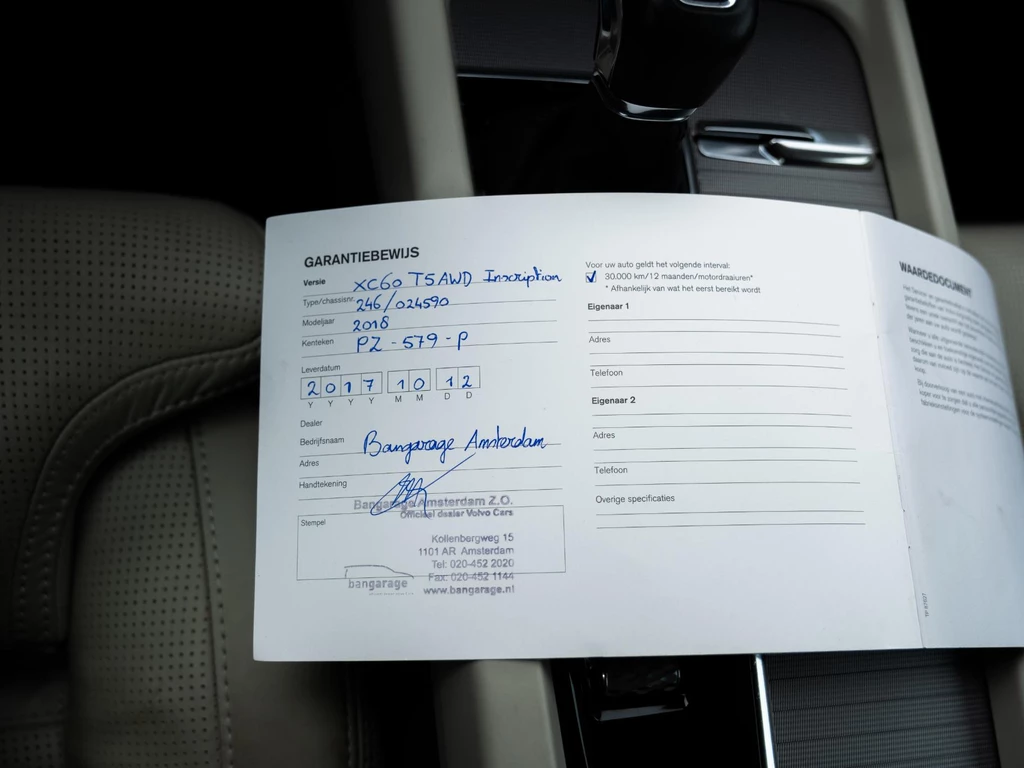 GARANTIEBEWIJS
Versie XC60 T5 AWD Inscription
Type/chassisnr. 246/024590
Modeljaar 2018
Kenteken PZ-579-P
Leverdatum
2 0 1 7 1 0 1 2
Y Y Y Y M M D D
Dealer
Bedrijfsnaam Bangarage Amsterdam
Adres
Handtekening
Stempel
Bangarage Amsterdam Z.O.
Officieel dealer Volvo Cars
Kollenbergweg 15
1101 AR Amsterdam
Tel: 020-452 2020
Fax: 020-452 1144
www.bangarage.nl
bangarage
Voor uw auto geldt het volgende interval:
30.000 km/12 maanden/motordraaiuren*
* Afhankelijk van wat het eerst bereikt wordt
Eigenaar 1
Adres
Telefoon
Eigenaar 2
Adres
Telefoon
Overige specificaties
WAARDEDOCUMENT